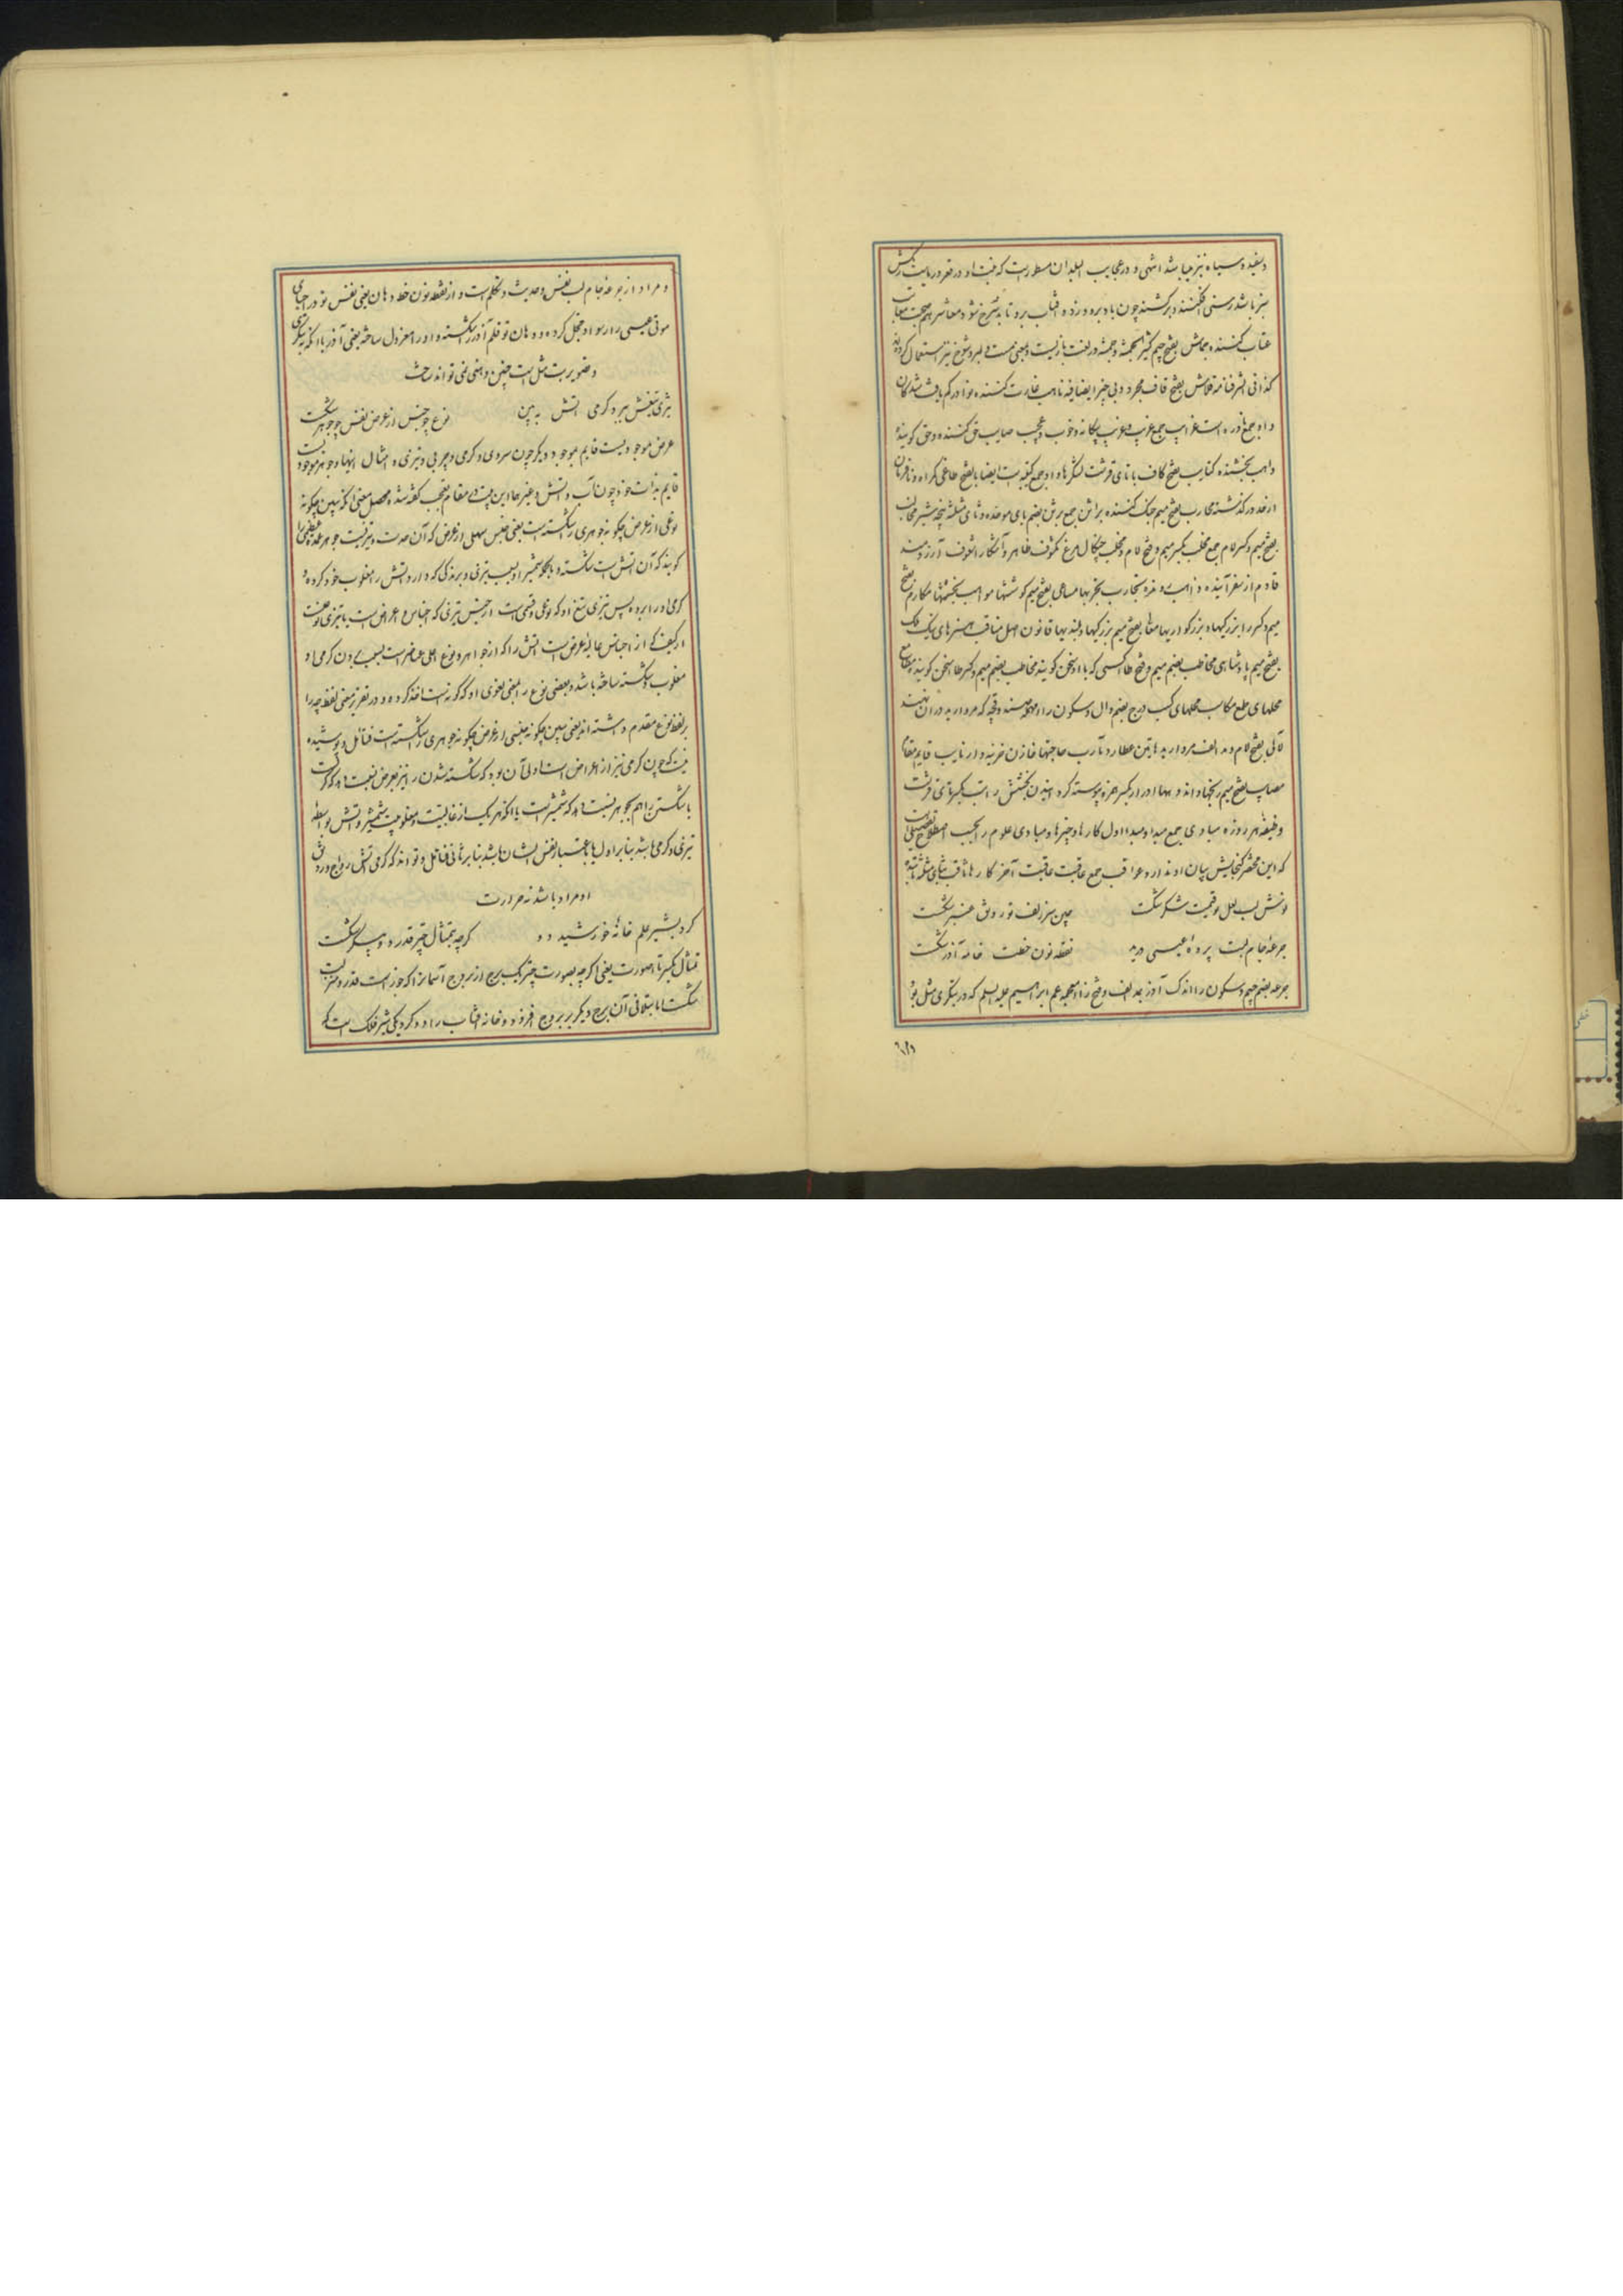 و سفیده و سیاه نیز میباشد انتهی و در عجایب البلدان مسطورست که منبت او در قعر دریاست رنگش
سبز باشد رسنی افکنند و برکشند چون باد برو وزد و آفتاب برو تابد سرخ شود معاشر هم صحبت معاتب
عتاب کننده جماش بفتح جیم کثیر الجمشه و جمشه در لغت بازیست و بمعنی مست و دلبر و شوخ نیز استعمال کرده‌اند
کذا فی الشرفنامه قلاش بفتح قاف مجرد و بی چیز ایضا فیه ناهب غارت کننده نوادر کم یافت شدگان
و او جمع نادره است غرایب جمع غریب و غریب بیگانه و خوب و عجب صایب حق کننده و حق گوینده
واهب بخشنده کتایب بفتح کاف با تای قرشت لشکرها و او جمع کتیبه است ایضا بالفتح طاغی گمراه و نافرمان
از حد درگذشته محارب بضم میم جنگ کننده براثن جمع برثن بضم بای موحده و ثای مثلثه پنجه شیر مخالب
بفتح میم و کسر لام جمع مخلب بکسر میم و فتح لام و مخلب چنگال مرغ مکشوف ظاهر و آشکارا مشعوف آرزومند
قادم از سفر آینده ذاهب رونده تجارب تجربها مساعی بفتح میم کوششها مواهب بخششها مکارم بفتح
میم و کسر را بزرگیها و بزرگواریها معالی بفتح میم بزرگیها و بلندیها قانون اصل مناقب هنرهای نیک ملک
بضم میم پادشاهی مخاطب بضم میم و فتح طا کسی که با او سخن گویند مخاطب بضم میم و کسر طا سخن گوینده مطامع
محلهای طمع مکاسب محلهای کسب درج بضم دال و سکون را و مهمله صندوقچه که مروارید در آن نهند
لآلی بفتح لام و مد الف مرواریدها تیر عطارد مآرب حاجتها خازن خزینه دار نایب قایم مقام
مصایب بفتح میم رنجها و اندوهها ادرار بکسر همزه پیوسته کردانیدن بخشش راتب بکسر تای قرشت
وظیفه هر روزه مبادی جمع مبدا و مبدا اول کارها و چیزها و مبادی علوم را بحسب اصطلاح تفصیلی است
که این مختصر گنجایش بیان او ندارد عواقب جمع عاقبت عاقبت آخر کارها ثاقب بثای مثلثه تابنده
نوش لب لعل تو قیمت شکر شکست چین سر زلف تو رونق عنبر شکست
جرعهٔ جام لبت پردهٔ عیسی درید نقطه نون خطت خامهٔ آذر شکست
جرعه بضم جیم و سکون را اندک آذر بمد الف و فتح ذال معجمه عم ابراهیم علیه السلم که در بتگری مثل بود
و مراد
و مراد از جرعهٔ جام لب نفس و حدیث و تکلم است و از نقطه نون خط دهان یعنی نفس تو در احیای
موتی عیسی را رسوا و خجل کرده و دهان تو قلم آذر شکسته و او را معزول ساخته یعنی آذر با آنکه در بتگری
و تصویر بت مثل است چنین دهنی نمی تواند ساخت
تیزی تیغش ببرد گرمی آتش ببین نوع چو جنس از عرض نفس چو جوهر شکست
عرض موجودیست قایم بموجود دیگر چون سردی و گرمی و چربی و تیزی و امثال اینها و جوهر موجودیست
قایم بذات خود چون آب و آتش و غیرها و این بیت در مقام تعجب گفته شده محصل معنی آنکه ببین چگونه
نوعی از عرض چگونه جوهری را شکسته است یعنی جنس سهلی از عرض که آن حدت و تیزیست جوهر عمده عظیمی را
گویند که آن آتش است شکسته و بالجمله شمشیر او بسبب تیزی و برندگی که دارد آتش را مغلوب خود کرده و
گرمی او را برده پس تیزی تیغ او که نوعی و قسمی است از جنس تیزی که اجناس اعراض است یا تیزی نوعیست
از کیف که از اجناس عالیهٔ عرض است آتش را که از جواهر و نوع اعلی عناصر است بسبب بردن گرمی او
مغلوب و شکسته ساخته باشد و بعضی نوع را بمعنی لغوی او که گونه است اخذ کرده و در تقریر معنی لفظ چه را
بر لفظ نوع مقدم داشته اند یعنی ببین چگونه جنسی از عرض چگونه جوهری را شکسته است فتامل و پوشیده
نیست که چون گرمی نیز از اعراض است اولی آن بود که شکسته شدن را نیز بعرض نسبت دهد که گرمیست
یا شکستن را هم بجوهر نسبت دهد که شمشیر است یا آنکه هر یک از غالبیت و مغلوبیت شمشیر و آتش بواسطهٔ
تیزی و گرمی باشد بنا بر اول یا باعتبار نفس ایشان باشد بنا بر ثانی فتامل و تواند که گرمی آتش رواج و رونق
او مراد باشد نه حرارت
کرد بشیر علم خانهٔ خورشید دو گرچه بتمثال چتر قدر دو پیکر شکست
تمثال بکسر تا صورت یعنی اگرچه بصورت چتر یک برج از بروج آسمان را که جوزاست قدر و منزلت
شکست اما بتلافی آن برج دیگر بر بروج افزود و خانه آفتاب را دو کرد یکی شیر فلک است که